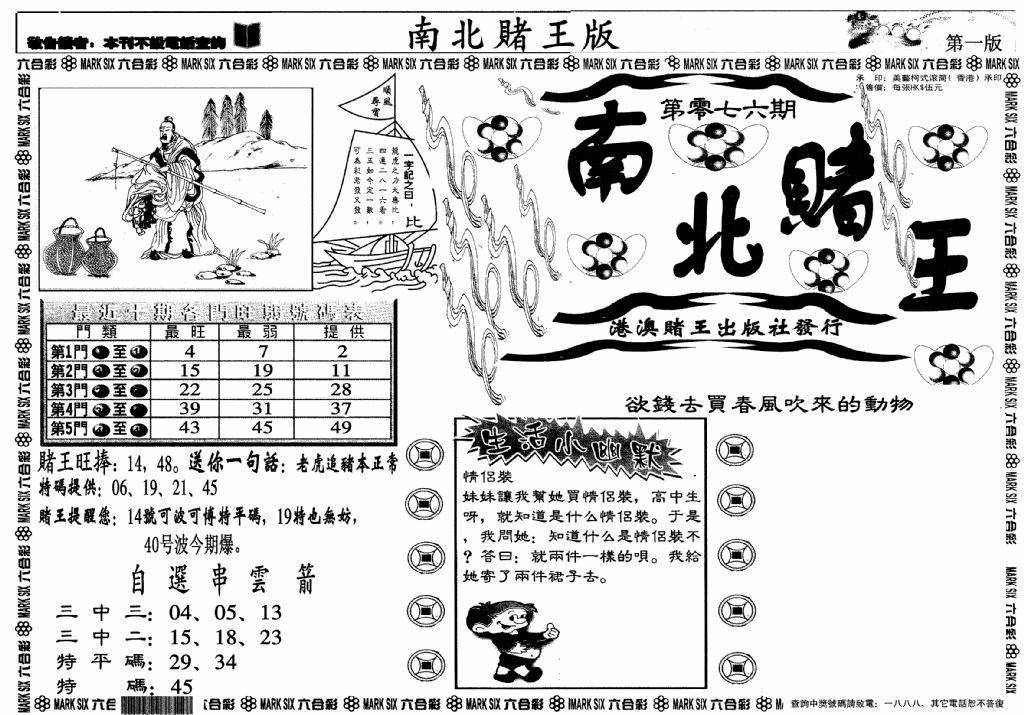 敬告讀者：本刊不設電話查詢
南北賭王版
第一版
六合彩 MARK SIX 六合彩 MARK SIX 六合彩 MARK SIX 六合彩 MARK SIX 六合彩 MARK SIX 六合彩 MARK SIX 六合彩 MARK SIX 六合彩 MARK SIX 六合彩 MARK SIX 六合彩 MARK SIX
承 印：美藝柯式滾筒（香港）承印
售價：每張HK$伍元
第零七六期
南北賭王
港澳賭王出版社發行
順風
尋寶
一字記之曰：比
龍虎之力大無比，
四通二八一六看。
三五如今定一數，
可為彩老發又發。
最近十期各門旺弱號碼表
門類 最旺 最弱 提供
第1門 至 4 7 2
第2門 至 15 19 11
第3門 至 22 25 28
第4門 至 39 31 37
第5門 至 43 45 49
賭王旺捧：14，48。送你一句話：老虎追豬本正常
特碼提供：06、19、21、45
賭王提醒您：14號可波可博特平碼，19特也無妨，
40号波今期爆。
自選串雲箭
三中三：04、05、13
三中二：15、18、23
特平碼：29、34
特碼：45
欲錢去買春風吹來的動物
生活小幽默
情侶裝
妹妹讓我幫她買情侶裝，高中生
呀，就知道是什么情侶裝。于是
，我問她：知道什么是情侶裝不
？答曰：就兩件一樣的唄。我給
她寄了兩件裙子去。
查詢中獎號碼請致電：一八八八，其它電話恕不答復